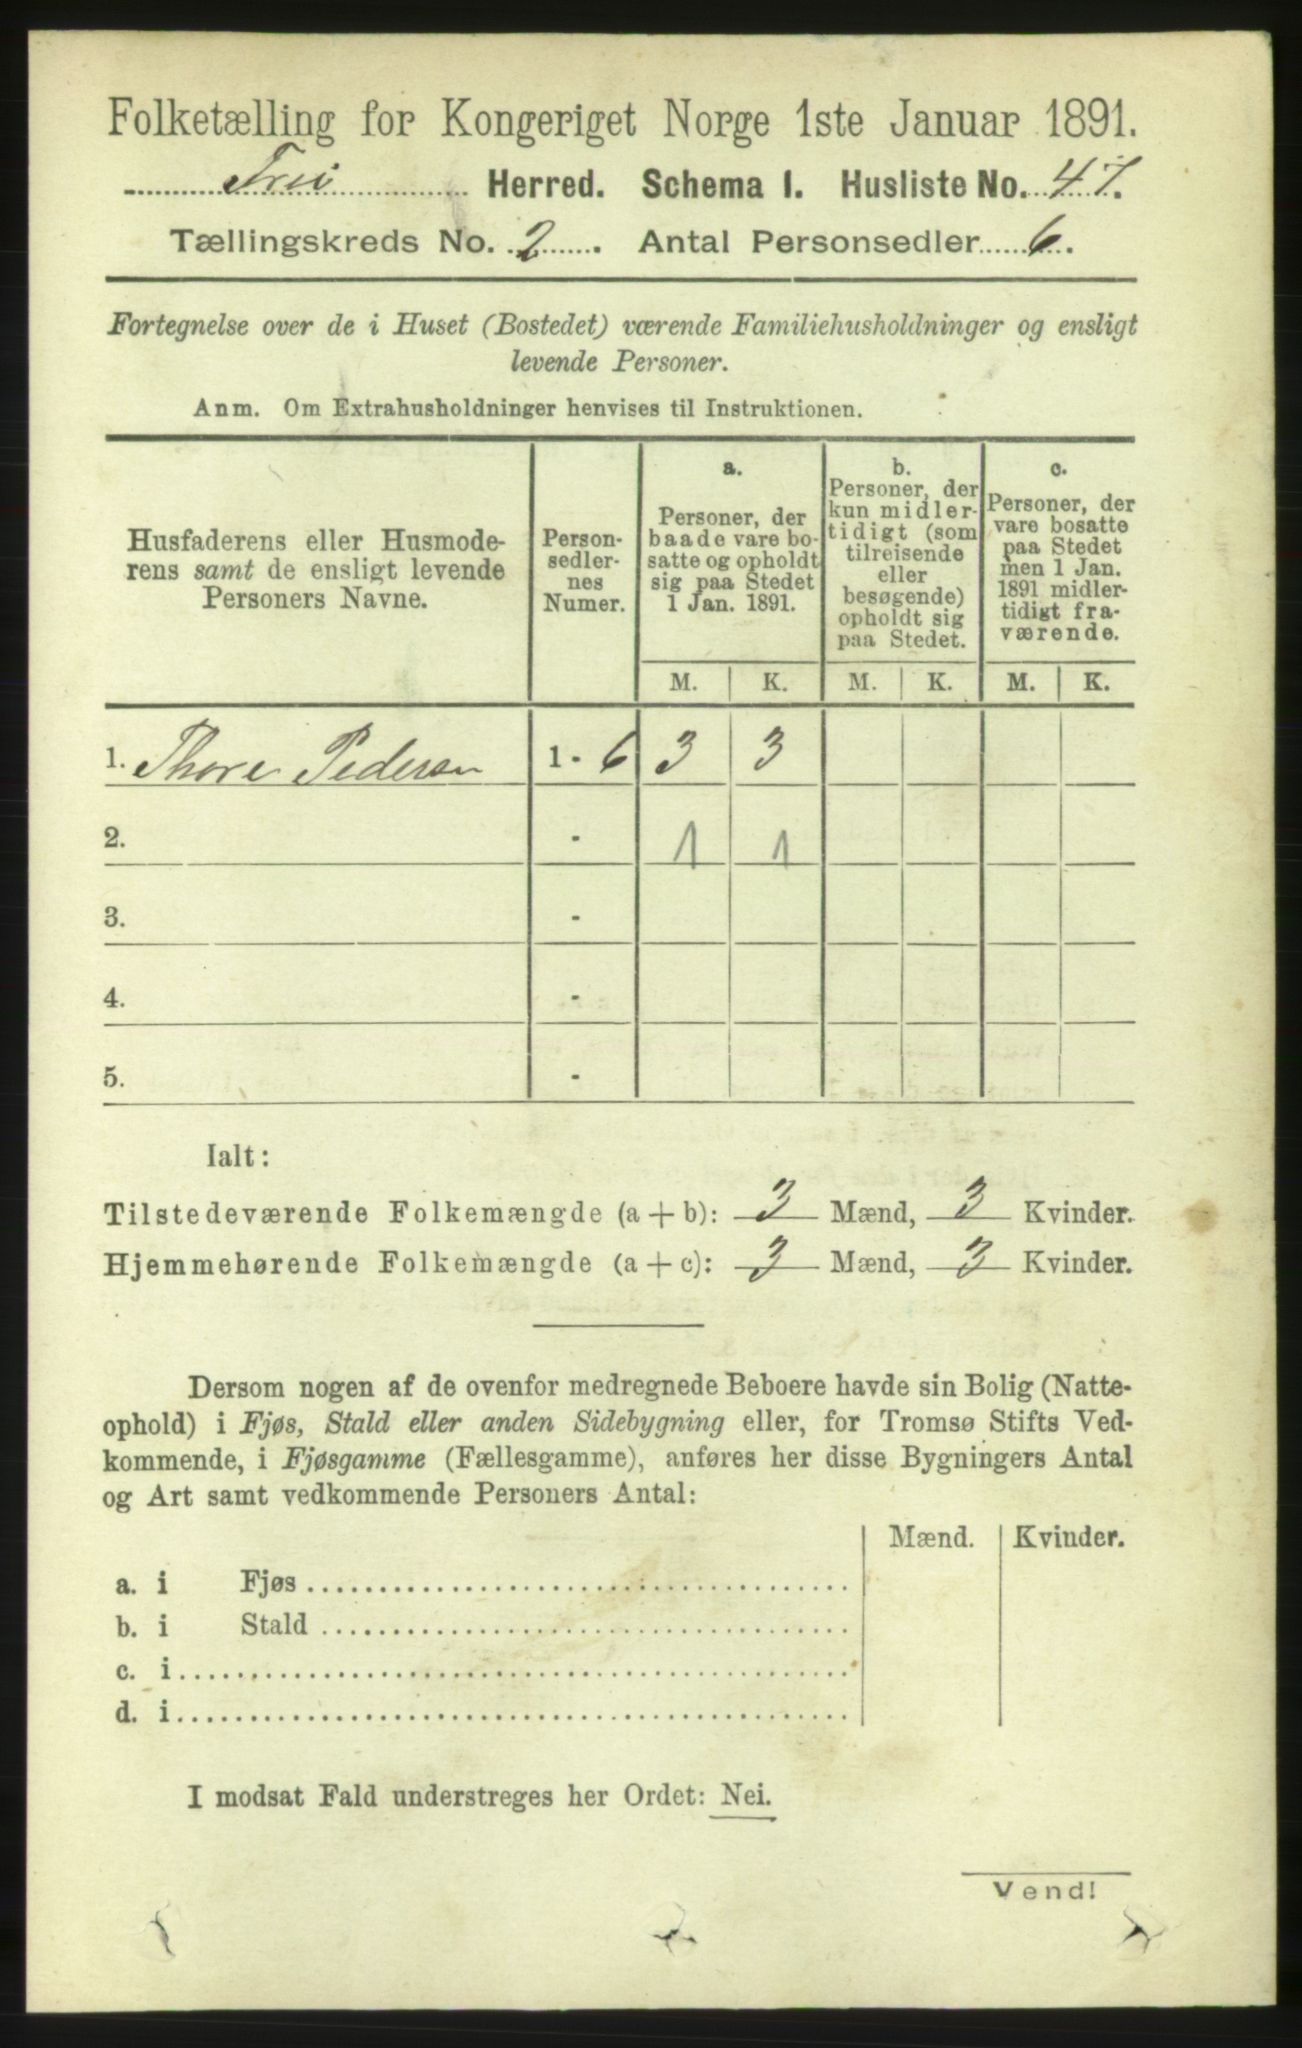 Folketælling for Kongeriget Norge 1ste Januar 1891.
Frei Herred. Schema 1. Husliste No. 47.
Tællingskreds No. 2. Antal Personsedler 6.
Fortegnelse over de i Huset (Bostedet) værende Familiehusholdninger og ensligt
levende Personer.
Anm. Om Extrahusholdninger henvises til Instruktionen.
Husfaderens eller Husmode-
rens samt de ensligt levende
Personers Navne.
Person-
sedler-
nes
Numer.
a.
Personer, der
baade vare bo-
satte og opholdt
sig paa Stedet
1 Jan. 1891.
b.
Personer, der
kun midler-
tidigt (som
tilreisende
eller
besøgende)
opholdt sig
paa Stedet.
c.
Personer, der
vare bosatte
paa Stedet
men 1 Jan.
1891 midler-
tidigt fra-
værende.
M. K. M. K. M. K.
1. Thore Pedersen 1 - 6 3 3
2. - 1 1
3. -
4. -
5. -
Ialt:
Tilstedeværende Folkemængde (a + b): 3 Mænd, 3 Kvinder.
Hjemmehørende Folkemængde (a + c): 3 Mænd, 3 Kvinder.
Dersom nogen af de ovenfor medregnede Beboere havde sin Bolig (Natte-
ophold) i Fjøs, Stald eller anden Sidebygning eller, for Tromsø Stifts Ved-
kommende, i Fjøsgamme (Fællesgamme), anføres her disse Bygningers Antal
og Art samt vedkommende Personers Antal:
Mænd. Kvinder.
a. i Fjøs
b. i Stald
c. i
d. i
I modsat Fald understreges her Ordet: Nei.
Vend!